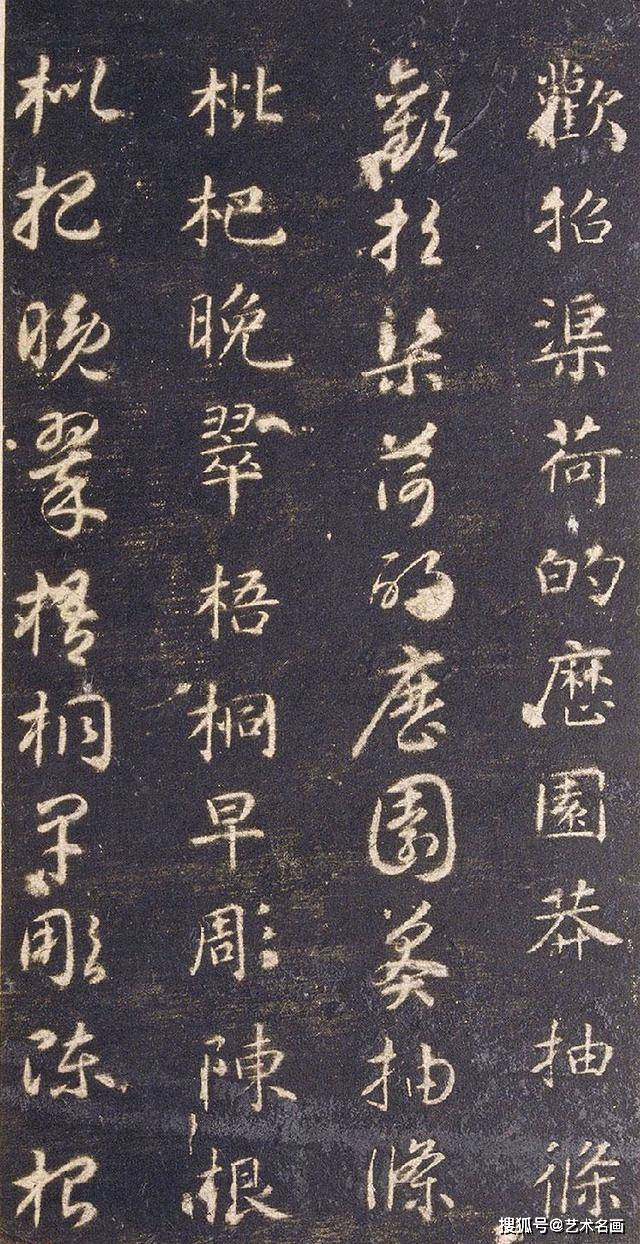 歡招渠荷的歷園莽抽條
歡招渠荷的歷園莽抽條
枇杷晚翠梧桐早彫陳根
枇杷晚翠梧桐早彫陳根
搜狐号@艺术名画